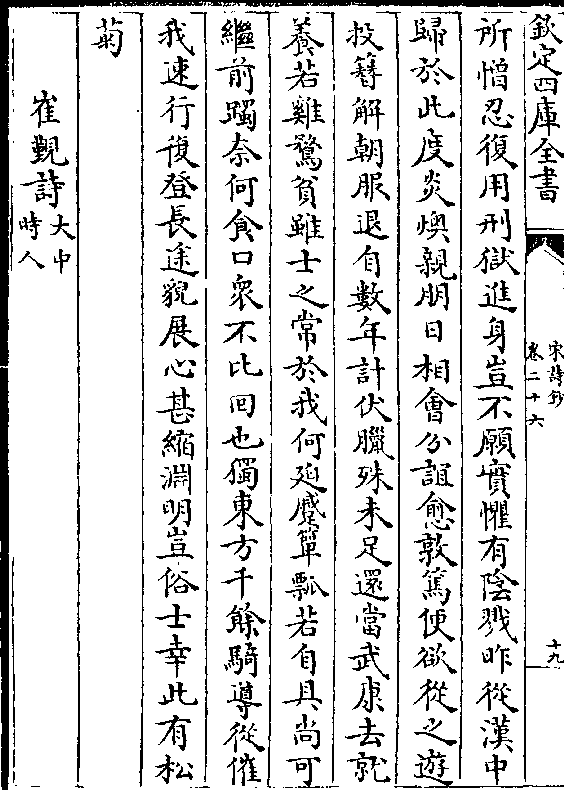 欽定四庫全書
宋詩鈔
卷二十六
十九
所憎忍復用刑獄進身豈不願實懼有陰戮昨從漢中
歸於此度炎燠親朋日相會分誼愈敦篤便欲從之遊
投簪解朝服退自數年計伏臘殊未足還當武康去就
養若雞鶩貧雖士之常於我何延蹙簞瓢若自具尚可
繼前躅奈何食口衆不比回也獨東方千餘騎導從催
我速行復登長途貌展心甚縮淵明豈俗士幸此有松
菊
崔覲詩大中
時人